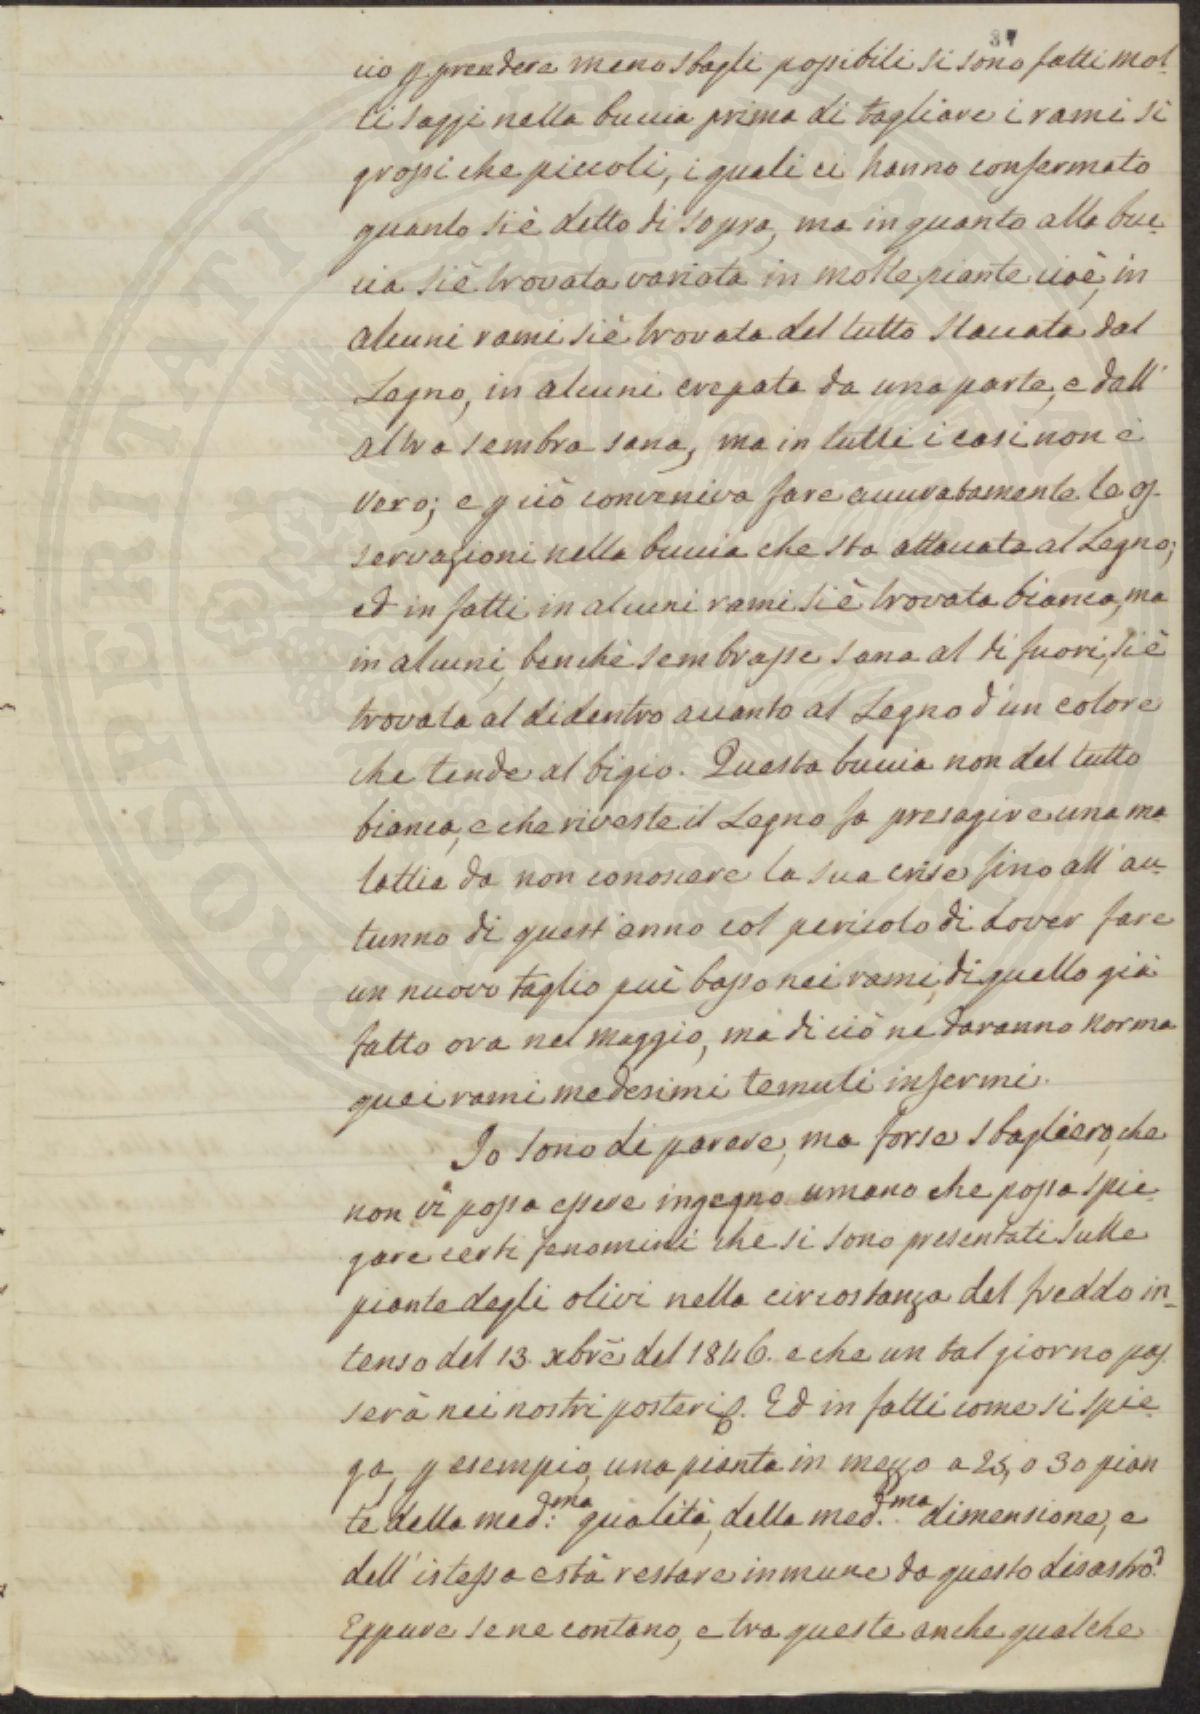 37
ciò p. prendere meno sbagli possibili si sono fatti mol-
ti saggi nella buccia prima di tagliare i rami sì
grossi che piccoli, i quali ci hanno confermato
quanto si è detto di sopra, ma in quanto alla buc-
cia si è trovata variata in molte piante cioè, in
alcuni rami si è trovata del tutto staccata dal
Legno, in alcuni crepata da una parte, e dall'
altra sembra sana, ma in tutti i casi non è
vero; e p ciò conveniva fare accuratamente le os-
servazioni nella buccia che sta attaccata al Legno;
ed in fatti in alcuni rami si è trovata bianca, ma
in alcuni, benchè sembrasse sana al di fuori, si è
trovata al didentro accanto al Legno d'un colore
che tende al bigio. Questa buccia non del tutto
bianca, e che riveste il Legno fa presagire una ma
lattia da non conoscere la sua crise fino all'au-
tunno di quest'anno col pericolo di dover fare
un nuovo taglio più basso nei rami, di quello già
fatto ora nel Maggio, ma di ciò ne daranno norma
quei rami medesimi temuti infermi.
Io sono di parere, ma forse sbaglierò, che
non vi possa essere ingegno umano che possa spie-
gare certi fenomini che si sono presentati sulle
piante degli olivi nella circostanza del freddo in-
tenso del 13. xbrè del 1846. e che un tal giorno pas-
serà nei nostri posteri. Ed in fatti come si spie-
ga, p esempio, una pianta in mezzo a 25, o 30 pian
te della med:ma qualità, della med:ma dimensione, e
dell'istessa està restare inmune da questo disastro?
Eppure se ne contano, e tra queste anche qualche
PROSPERITATI PUBLICAE